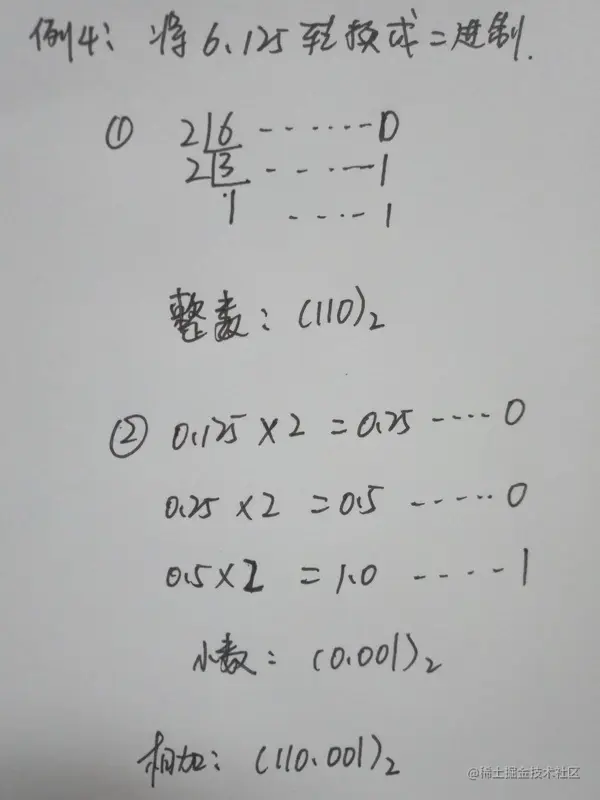 例4: 将6.125转换成二进制.
① 2|6 -------0
2|3 ------1
1 ----1
整数: (110)₂
② 0.125×2 =0.25 ----0
0.25×2 =0.5 -----0
0.5×2 =1.0 ----1
小数: (0.001)₂
相加: (110.001)₂
@稀土掘金技术社区